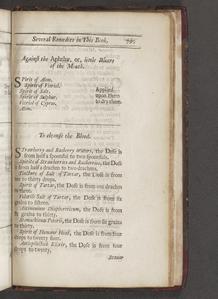 Several Remedies in This Book.
Against the Aphthæ, or, little Ulcers
of the Mouth.
Spirit of Alom.
Spirit of Vitriol.
Spirit of Salt.
Spirit of Sulphur.
Spirit of Cyprus.
Alom.
Applied
upon them
to dry them.
To cleanse the Blood.
Strawberry and Rasberry Waters, the Dose is
from half a spoonful to two spoonfuls.
Spirits of Strawberries and Rasberries, the Dose
is from half a drachm to two drachms.
Tincture of Salt of Tartar, the Dose is from
ten to thirty drops.
Spirit of Tartar, the Dose is from one drachm
to three.
Volatile Salt of Tartar, the Dose is from six
grains to fifteen.
Antimonium Diaphoreticum, the Dose is from
six grains to thirty.
the Dose is from six grains
to thirty.
Spirit of Humane Blood, the Dose is from four
drops to twenty four.
Elixir, the Dose is from four
drops to twenty.